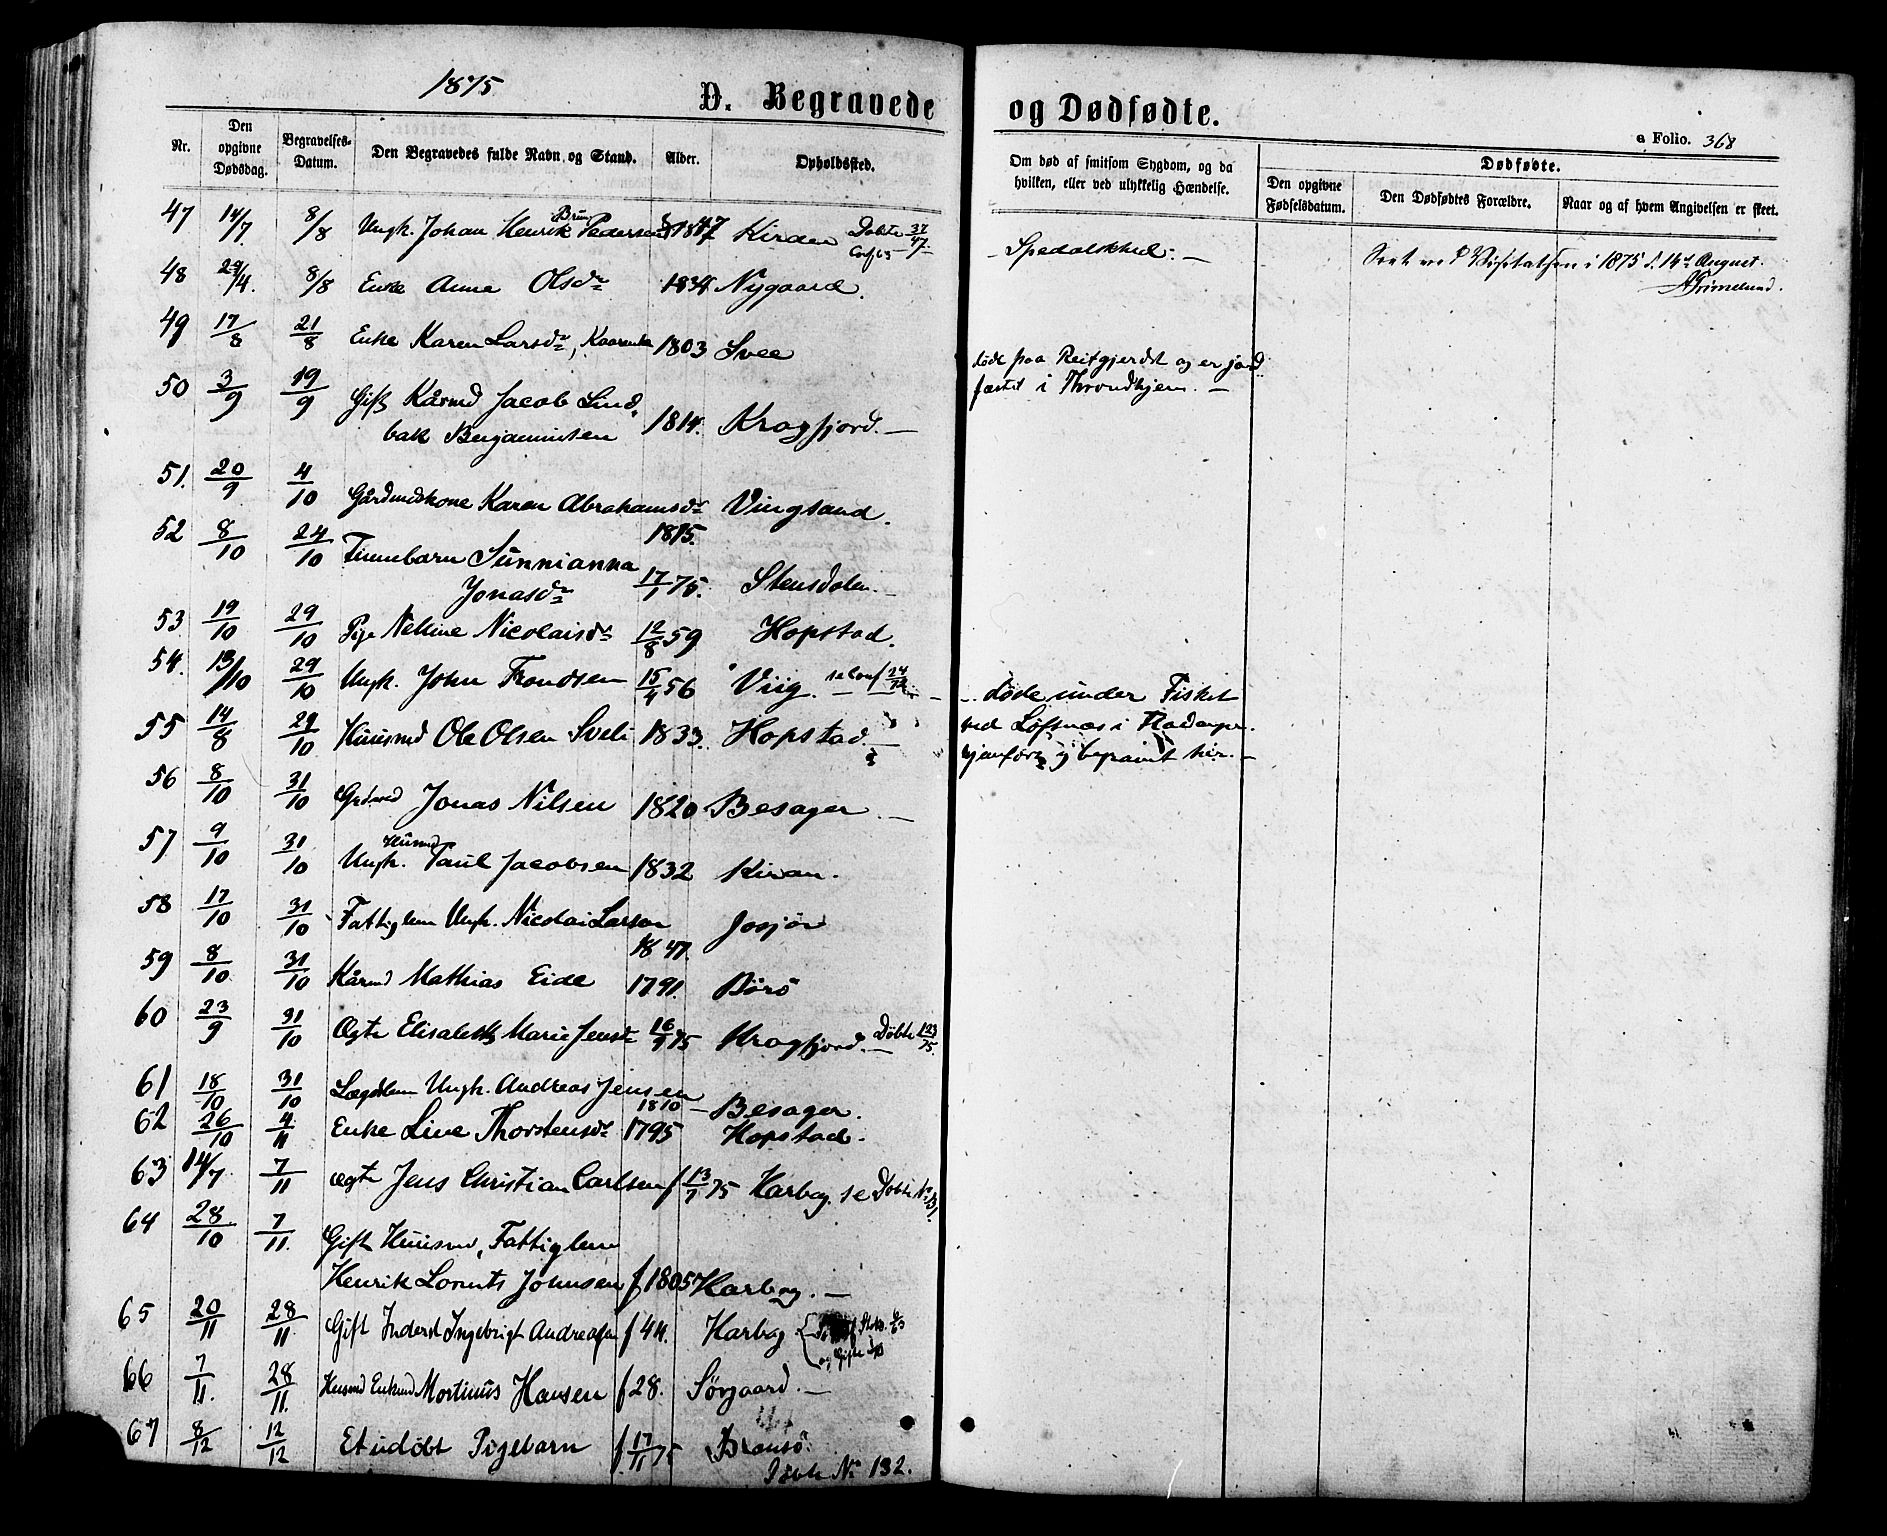 1875
D. Begravede
og Dødfødte.
Folio. 368
Nr.
Den opgivne Dødsdag.
Begravelses-Datum.
Den Begravedes fulde Navn og Stand.
Alder.
Opholdssted.
Om død af smitsom Sygdom, og da hvilken, eller ved ulykkelig Hændelse.
Dødfødte.
Den opgivne Fødselsdatum.
Den Dødfødtes Forældre.
Naar og af hvem Angivelsen er skeet.
47 14/7 8/8 Ungk. Johan Henrik Brun Pedersen 1847 Kirden Døbte 37/47
– Spedalskhed. –
Seet ved Visitatsen i 1875 d. 14de August.
AGrimelund.
48 29/4. 8/8 Enke Anna Olsdr 1834 Nygaard.
49 17/8 21/8 Enke Karen Larsdr, 1803 Svee
døde paa Reitgjerdet og er jord
fæstet i Throndhjem. –
50 3/9 19/9 Gift Kårmd Jacob Lind
bak Benjaminsen 1814. Kragfjord. –
51. 20/9 4/10 Gårdmdskone Karen Abrahamsdr Vingsand.
1815.
52 8/10 24/10 Finnebarn Sunnianna
Jonasdr 17/1 75. Stensdalen. –
53 19/10 29/10 Pige Nelline Nicolaisdr 12/8 59 Hopstad.
54. 13/10 29/10 Ungk. John Trondsen 15/4 56 Viig. se Conf 24/72
– døde under Fisket
55 14/8 29/10 Huusmd Ole Olsen Sveli 1833. Hopstad. –
ved Løftnæs i
56 8/10 31/10 Grdmd Jonas Nilsen 1820 Besager. –
57 9/10 31/10 Ungk. Husmd Paul Jacobsen 1832 Kiran.
58 17/10 31/10 Fattiglem Ungk. Nicolai Larsen Josjør
1847.
59 8/10 31/10 Kårmd Mathias Eide 1791. Børø
60 23/9 31/10 Ægte Elisabeth Marie Jensdr 16/9 75 Kragfjord. – Døbte 123/75.
61 18/10 31/10 Lægdslem Ungk. Andreas Jensen
1810 – Besager.
62 26/10 4/11 Enke Live Thorstensdr 1795 Hopstad.
63 14/7 7/11 ægte Jens Christian Carlsen f 13/7 75 Harbag. se Døbte No
64 28/10 7/11. Gift Huusmd, Fattiglem
Henrik Lorents Johnsen f 1805 Harbag. –
65 20/11 28/11 Gift Inderst Ingebrigt Andreassen f 44. Harbag
66 7/11. 28/11 Husmd Enkemd Mortinus Hansen f 28. Sørgaard. –
67 8/12 12/12 Et udøbt Pigebarn f 17/11 75 Bransø.
Døbte No 132.